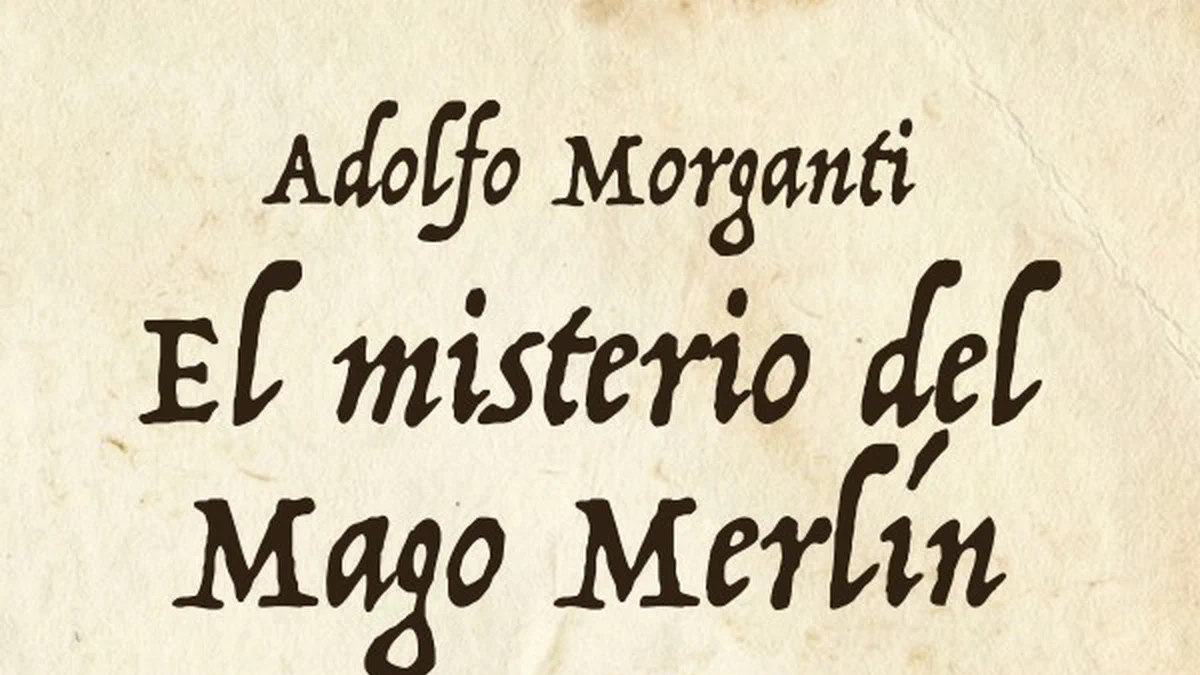 Adolfo Morganti
El misterio del
Mago Merlín